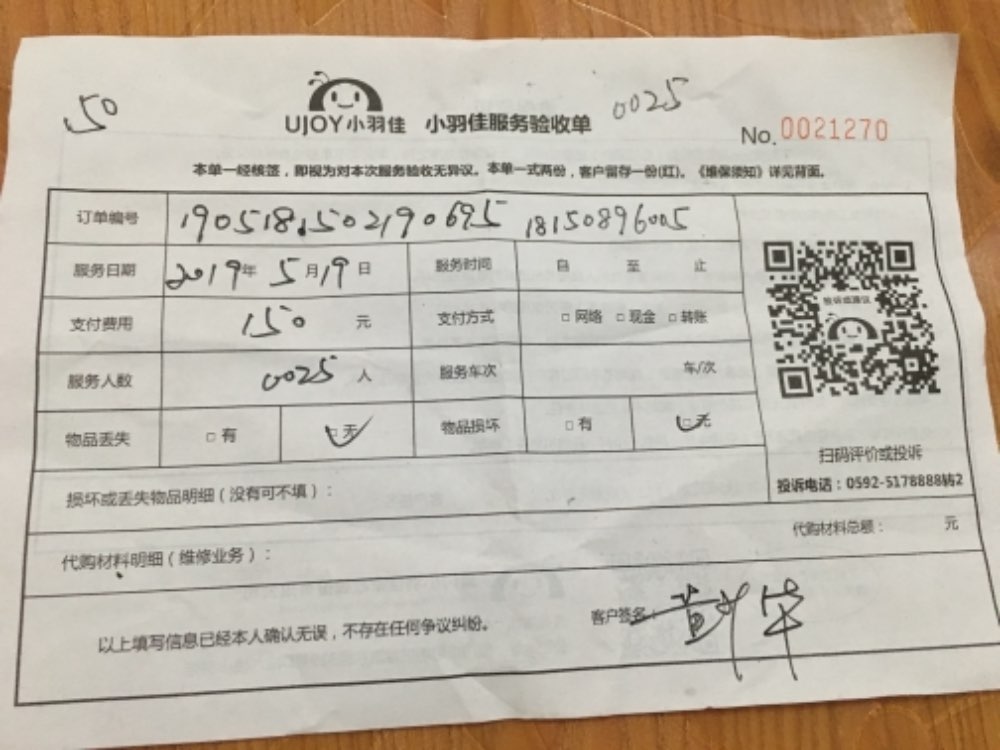 150
UJOY小羽佳 小羽佳服务验收单
0025
No. 0021270
本单一经核签，即视为对本次服务验收无异议。本单一式两份，客户留存一份(红)。《维保须知》详见背面。
订单编号 1905181502190695 18150896005
服务日期 2019年 5月19日 服务时间 自 至 止
支付费用 150 元 支付方式 □网络 □现金 □转账
服务人数 0025 人 服务车次 车/次
物品丢失 □有 □无 物品损坏 □有 □无
投诉或建议
扫码评价或投诉
投诉电话：0592-5178888转2
损坏或丢失物品明细（没有可不填）：
代购材料明细（维修业务）：
代购材料总额： 元
以上填写信息已经本人确认无误，不存在任何争议纠纷。
客户签名：